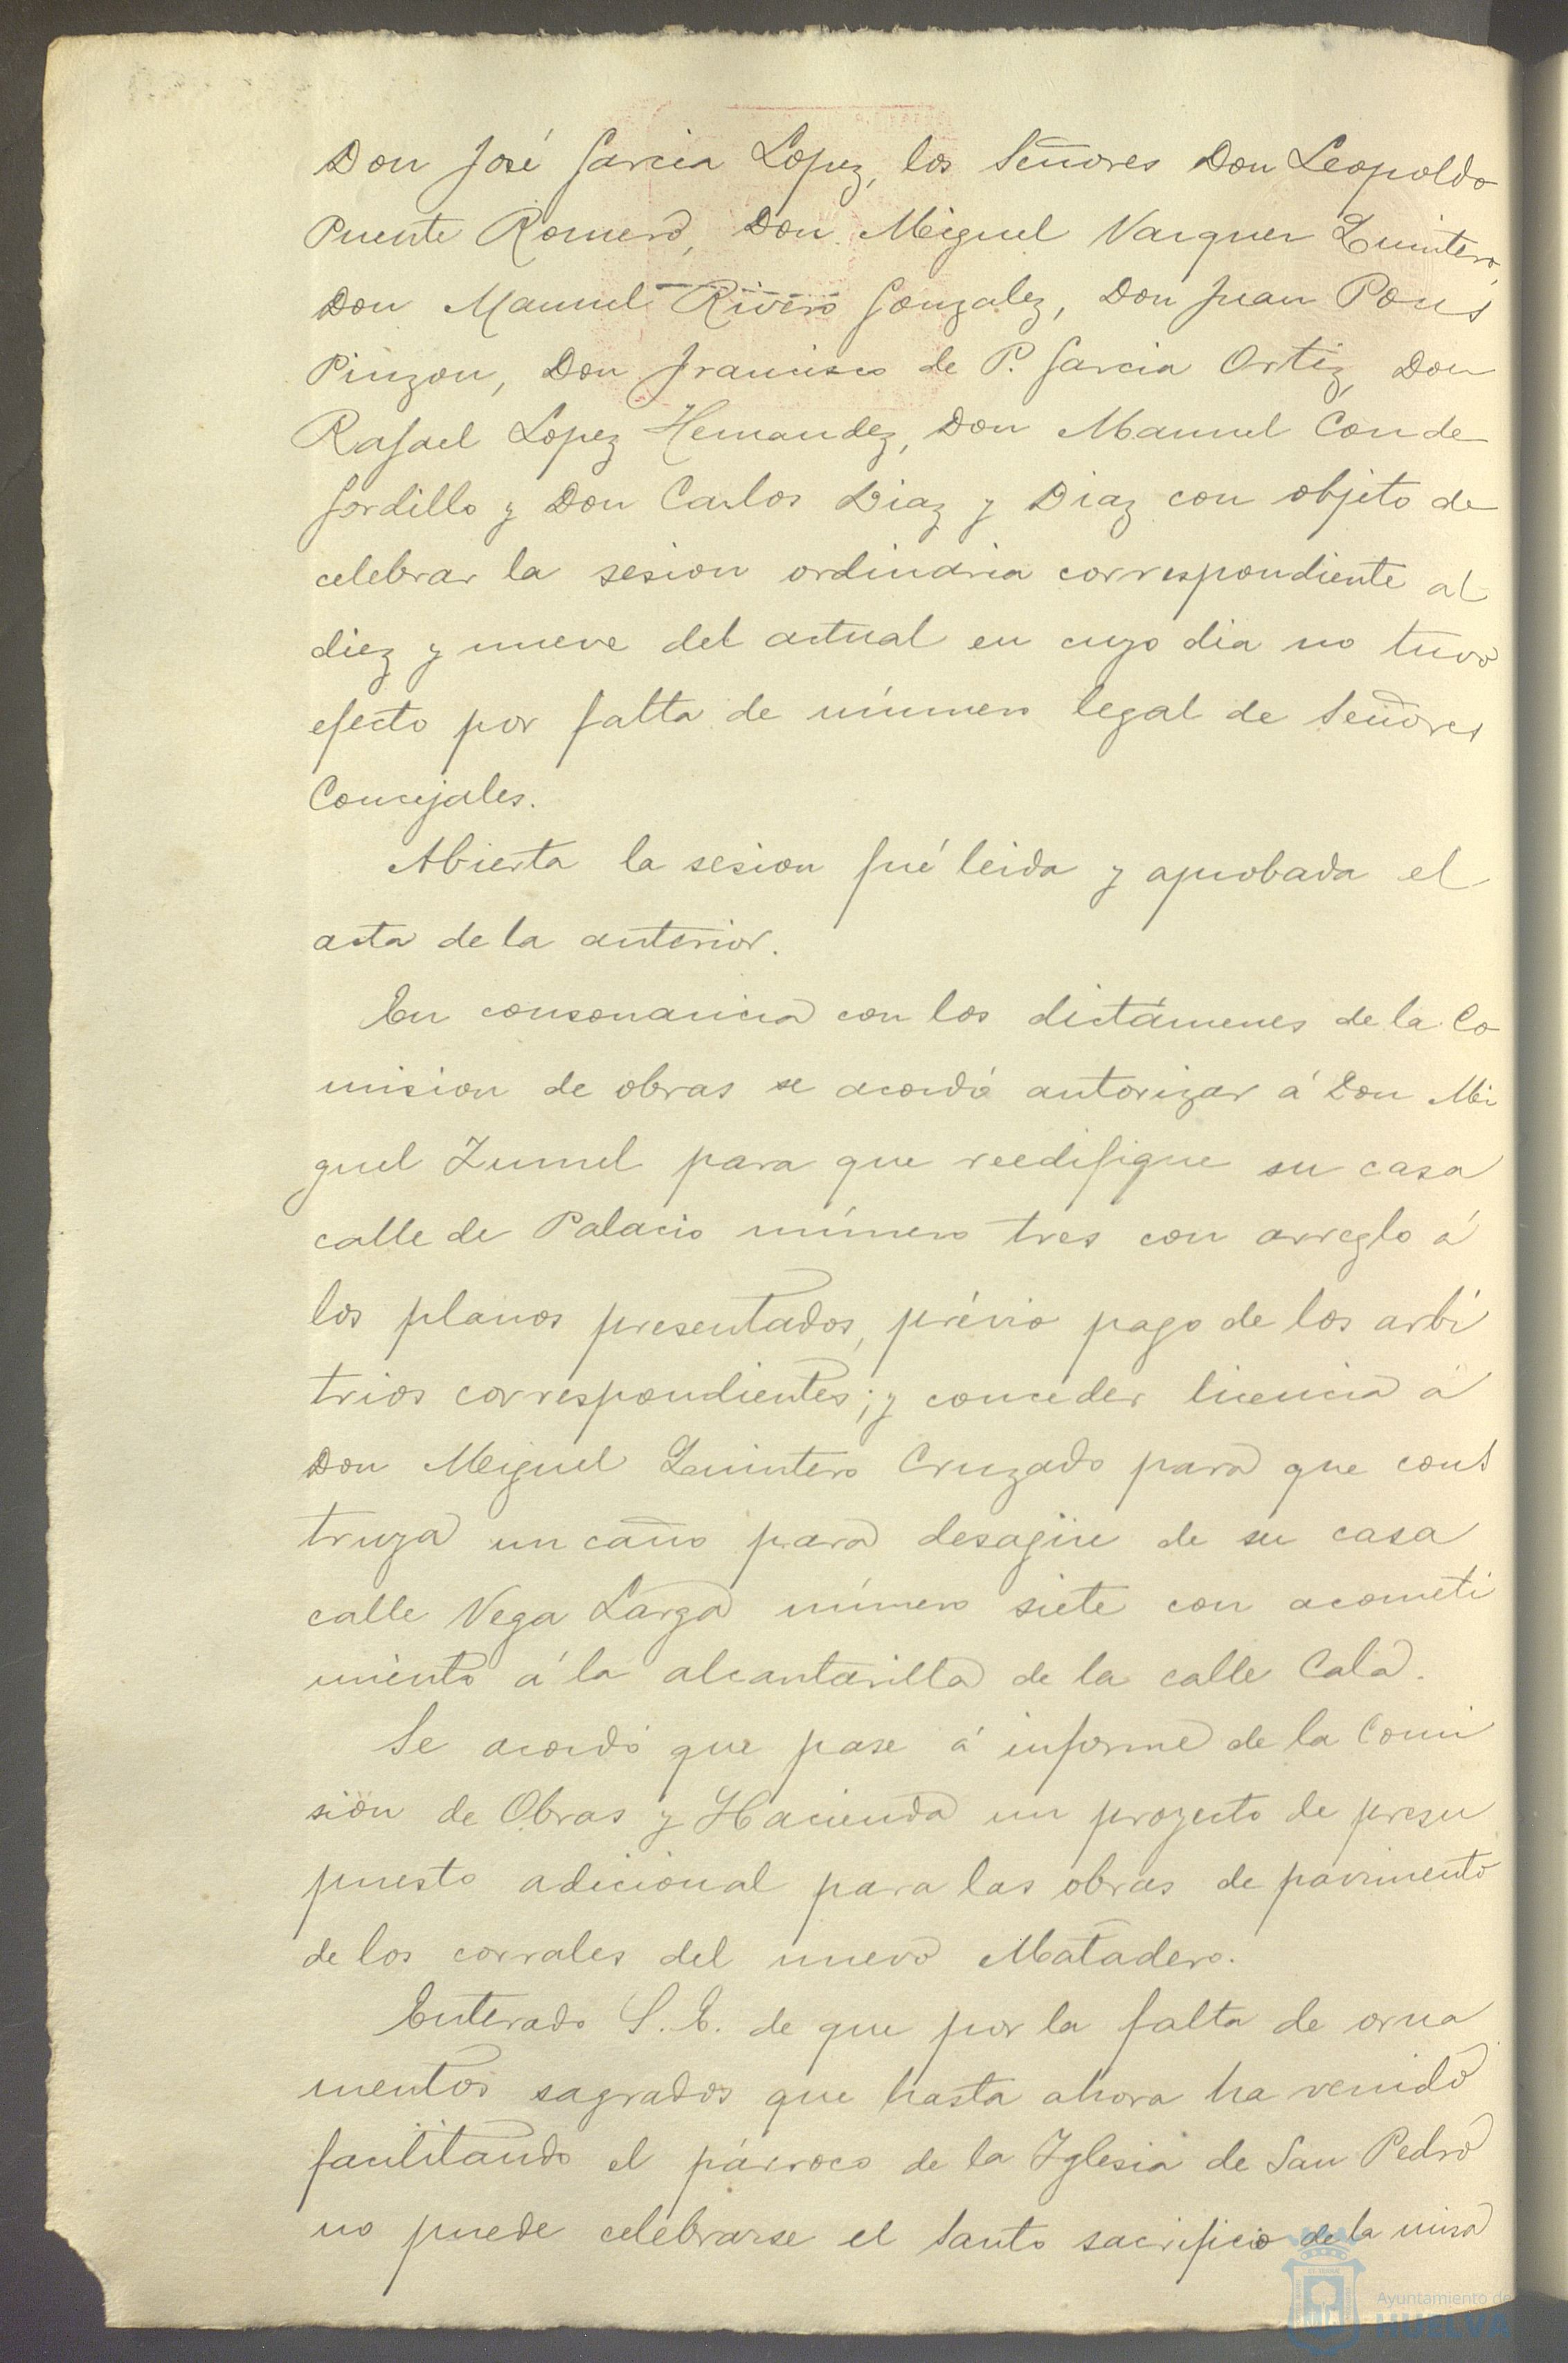 Don José Garcia Lopez, los Señores Don Leopoldo
Puente Romero, Don Miguel Vazquez Quintero,
Don Manuel Rivero Gonzalez, Don Juan Pons
Pinzon, Don Francisco de P. Garcia Ortiz, Don
Rafael Lopez Hernandez, Don Manuel Conde
Gordillo y Don Carlos Diaz y Diaz con objeto de
celebrar la sesion ordinaria correspondiente al
diez y nueve del actual en cuyo dia no tuvo
efecto por falta de número legal de Señores
Concejales.
Abierta la sesion fué leida y aprobada el
acta de la anterior.
En consonancia con los dictámenes de la Co
mision de obras se acordó autorizar á Don Mi
guel Zumel para que reedifique su casa
calle de Palacio número tres con arreglo á
los planos presentados, prévio pago de los arbi
trios correspondientes; y conceder licencia á
Don Miguel Quintero Cruzado para que cons
truya un caño para desagüe de su casa
calle Vega Larga número siete con acometi
miento á la alcantarilla de la calle Cala.
Se acordó que pase á informe de la Comi
sión de Obras y Hacienda un proyecto de presu
puesto adicional para las obras de pavimento
de los corrales del nuevo Matadero.
Enterado S. E. de que por la falta de orna
mentos sagrados que hasta ahora ha venido
facilitando el párroco de la Iglesia de San Pedro
no puede celebrarse el Santo sacrificio de la misa
Ayuntamiento de
HUELVA